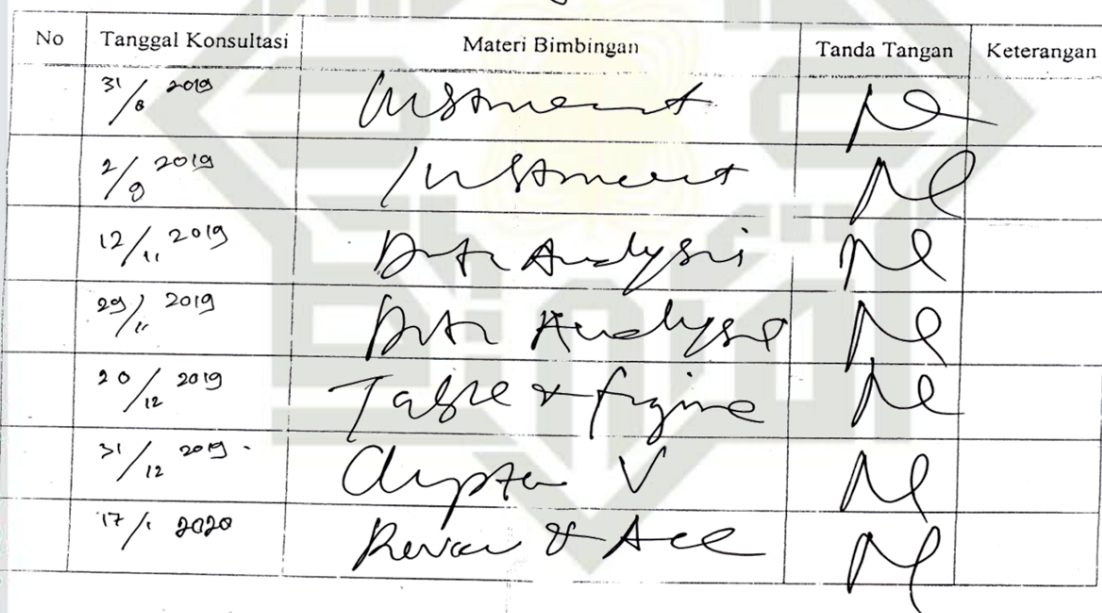 No Tanggal Konsultasi Materi Bimbingan Tanda Tangan Keterangan
31/8 2019 Instrument
2/9 2019 Instrument
12/11 2019 Data Analysis
29/11 2019 Data Analysis
20/12 2019 Table & figure
31/12 2019 Chapter V
17/1 2020 & Acc